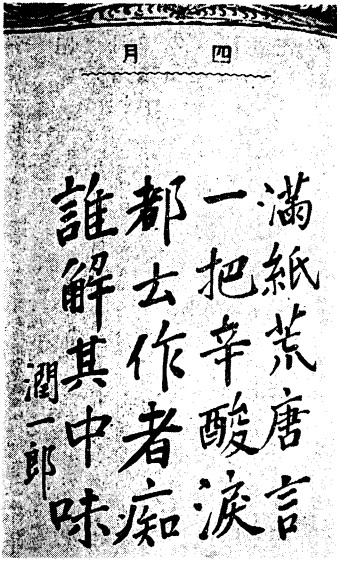 四月
滿紙荒唐言
一把辛酸淚
都云作者痴
誰解其中味
潤一郎